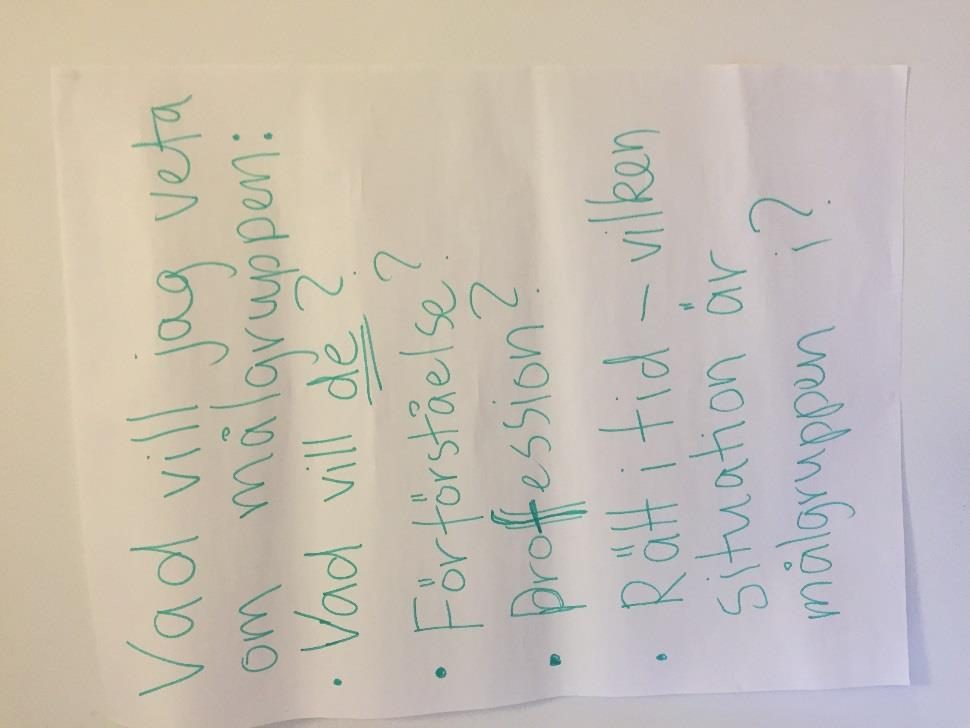 Vad vill jag veta
om målgruppen:
• Vad vill de?
• Förförståelse?
• profession?
• Rätt i tid – vilken
situation är
målgruppen i?